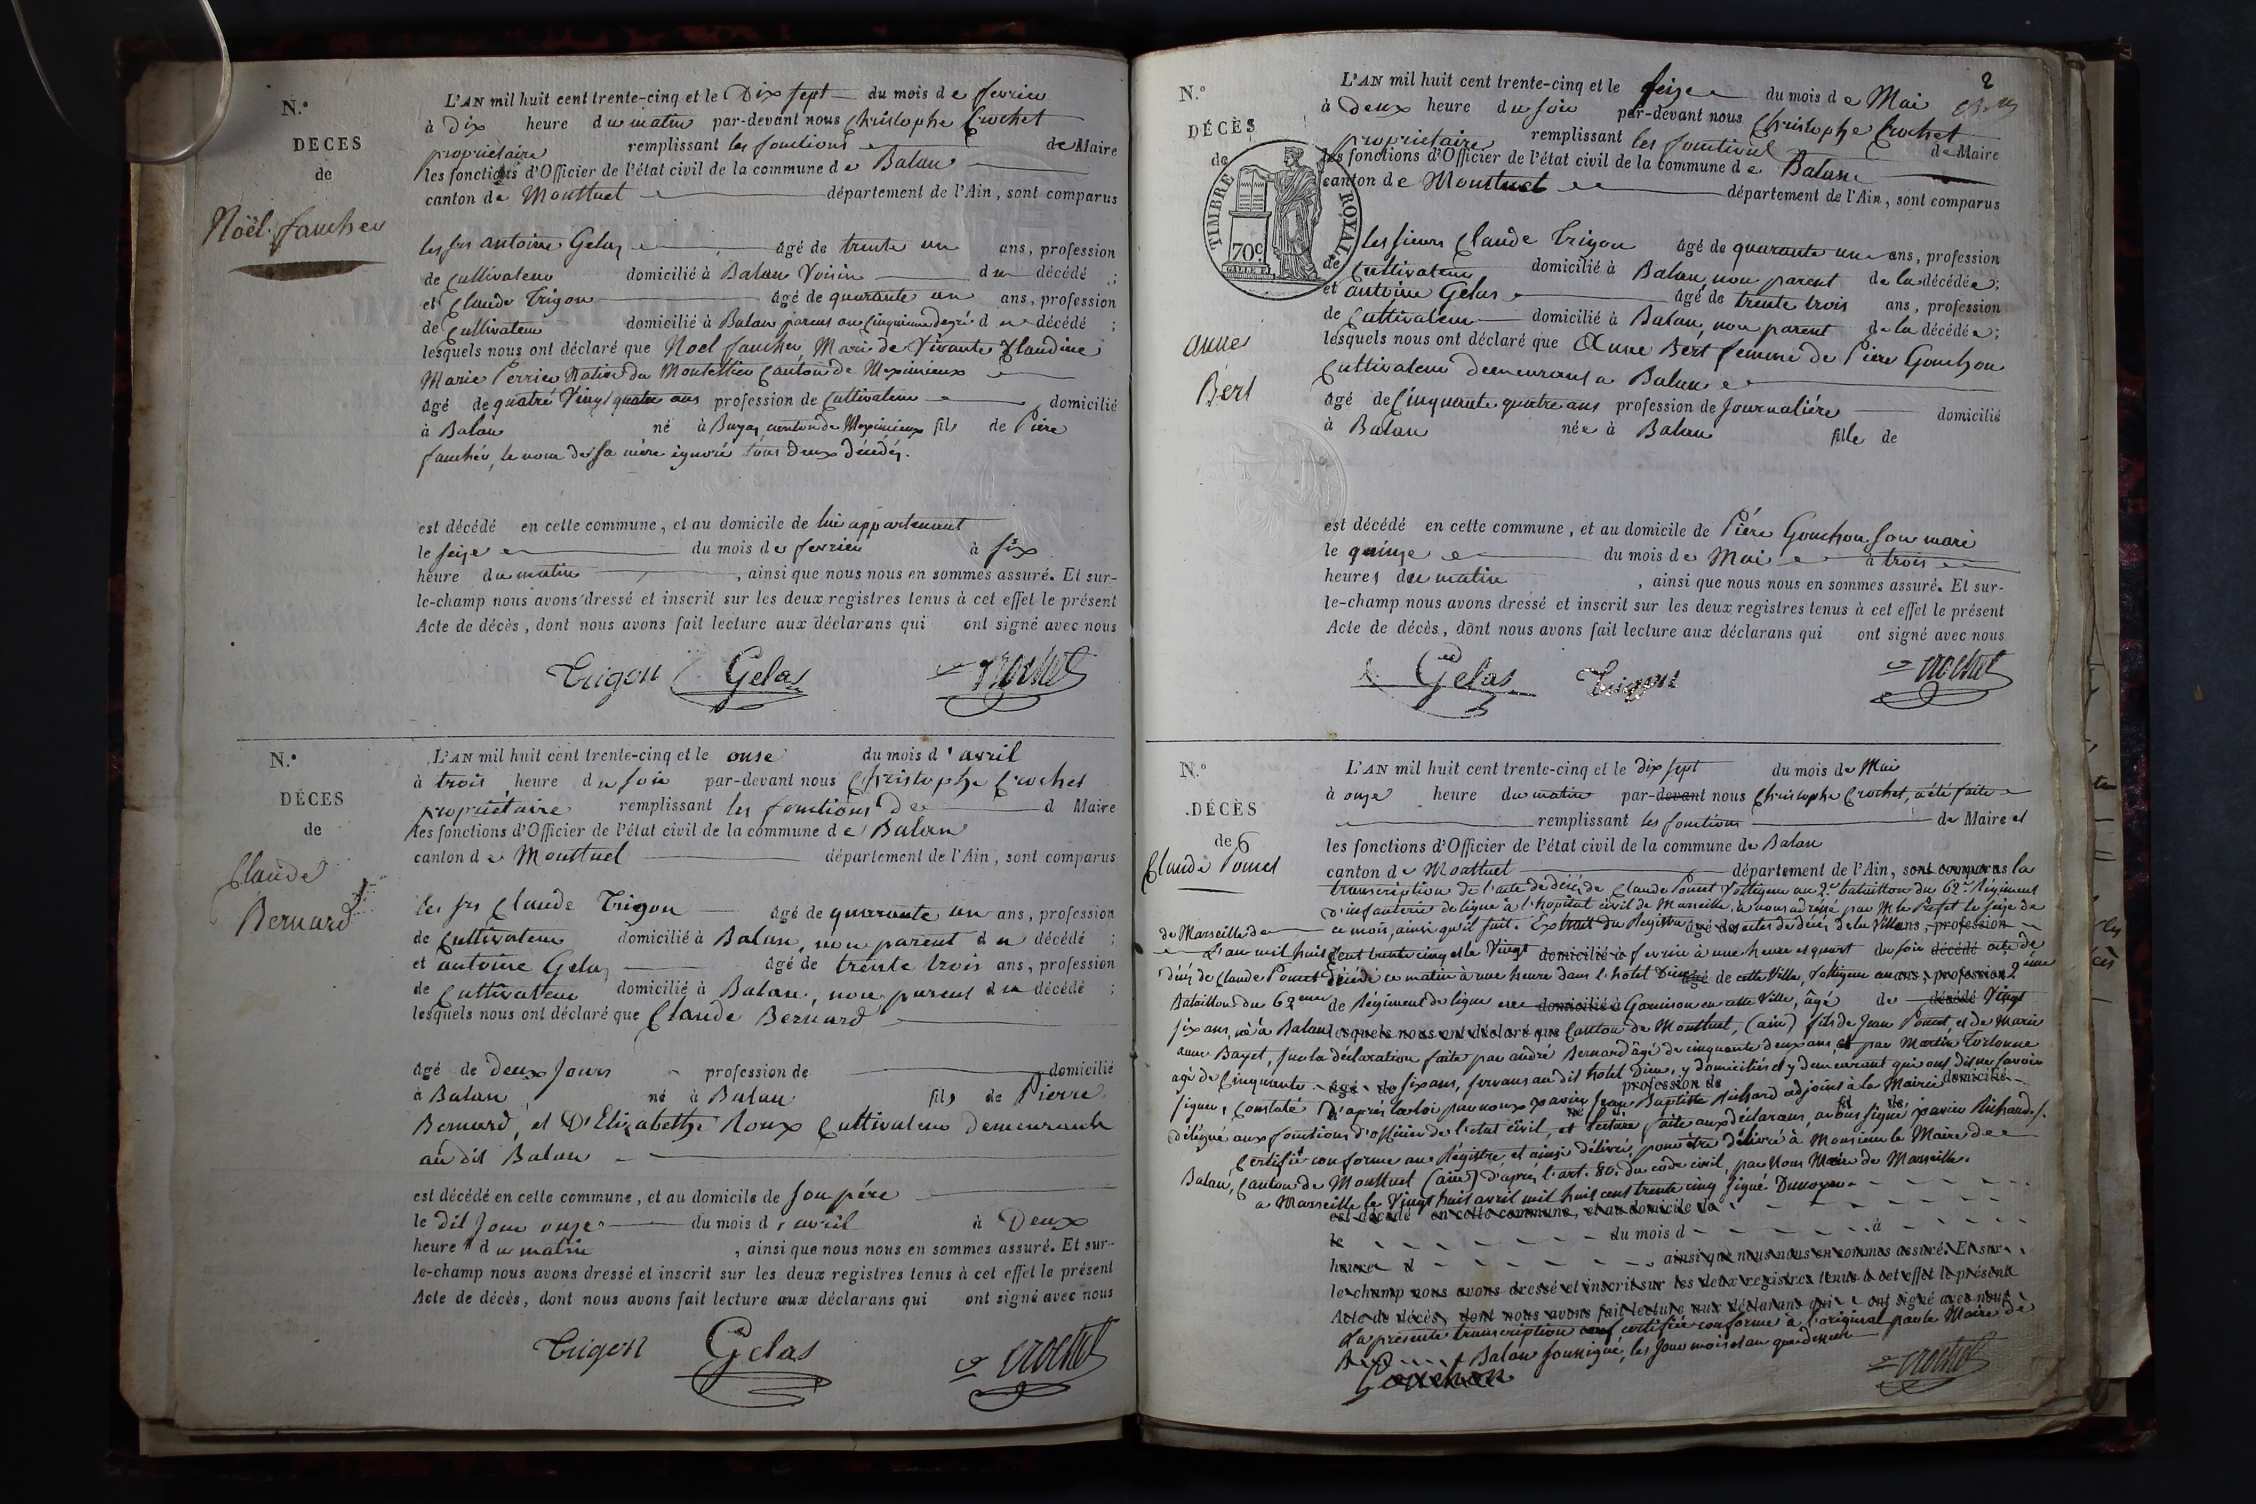 N.º
DECES
de
Noël faucher
L'AN mil huit cent trente-cinq et le Dix sept du mois de fevrier
à Dix heure du matin par-devant nous Christophe Crochet
proprietaire remplissant les fonctions de Maire
les fonctions d'Officier de l'état civil de la commune de Balan
canton de Montluel département de l'Ain, sont comparus
les srs antoine Gelas âgé de trente un ans, profession
de Cultivateur domicilié à Balan Voisin du décédé ;
et Claude Trigon âgé de quarante un ans, profession
de Cultivateur domicilié à Balan parens au Cinquieme degré du décédé ;
lesquels nous ont déclaré que Noel faucher Mari de Vivante Claudine
Marie Perrier Native du Montellier Canton de Meximieux
âgé de quatre Vingt quatre ans profession de Cultivateur domicilié
à Balan né à canton de Meximieux fils de Piere
faucher, le nom de sa mère ignoré tous deux décédés.
est décédé en cette commune, et au domicile de lui appartenant
le seize du mois de fevrier à six
heure du matin , ainsi que nous nous en sommes assuré. Et sur-
le-champ nous avons dressé et inscrit sur les deux registres tenus à cet effet le présent
Acte de décès, dont nous avons fait lecture aux déclarans qui ont signé avec nous
Trigon Gelas Crochet
N.º
DÉCES
de
Claude
Bernard
L'AN mil huit cent trente-cinq et le onse du mois d'avril
à trois heure du soir par-devant nous Christophe Crochet
proprietaire remplissant les fonctions de d Maire
les fonctions d'Officier de l'état civil de la commune de Balan
canton de Montluel département de l'Ain, sont comparus
les srs Claude Trigon âgé de quarante un ans, profession
de Cultivateur domicilié à Balan, non parent du décédé ;
et antoine Gelas âgé de trente trois ans, profession
de Cultivateur domicilié à Balan, non parent du décédé ;
lesquels nous ont déclaré que Claude Bernard
âgé de deux Jours profession de domicilié
à Balan né à Balan fils de Pierre
Bernard, et D'Elizabethe Roux Cultivateur demeurants
au dit Balan
est décédé en cette commune, et au domicile de son pére
le dit Jour onze du mois d'avril à Deux
heure du matin , ainsi que nous nous en sommes assuré. Et sur-
le-champ nous avons dressé et inscrit sur les deux registres tenus à cet effet le présent
Acte de décès, dont nous avons fait lecture aux déclarans qui ont signé avec nous
Trigon Gelas Crochet
2
N.º
DÉCÈS
de
TIMBRE ROYAL
70c
anne
Bert
L'AN mil huit cent trente-cinq et le seize du mois de Mai
à deux heure du soir par-devant nous Christophe Crochet
proprietaire remplissant les fonctions de Maire
les fonctions d'Officier de l'état civil de la commune de Balan
canton de Montluel département de l'Ain, sont comparus
les sieurs Claude Trigon âgé de quarante un ans, profession
de Cultivateur domicilié à Balan, non parent de la décédée ;
et antoine Gelas âgé de trente trois ans, profession
de Cultivateur domicilié à Balan, non parent de la décédée ;
lesquels nous ont déclaré que Anne Bert femme de Piere Gonchon
Cultivateur demeurant a Balan
âgé de Cinquante quatre ans profession de Journaliére domicilié
à Balan née à Balan fille de
est décédé en cette commune, et au domicile de Piére Gonchon son mari
le quinze du mois de Mai à trois
heures du matin , ainsi que nous nous en sommes assuré. Et sur-
le-champ nous avons dressé et inscrit sur les deux registres tenus à cet effet le présent
Acte de décès, dont nous avons fait lecture aux déclarans qui ont signé avec nous
Gelas Trigon Crochet
N.º
DÉCÈS
de 6
Claude Poncet
L'AN mil huit cent trente-cinq et le dix sept du mois de Mai
à onze heure du matin par-devant nous Christophe Crochet, a été faite
remplissant les fonctions de Maire et
les fonctions d'Officier de l'état civil de la commune de Balan
canton de Montluel département de l'Ain, sont comparus la
transcription de l'acte de décès de Claude Poncet Voltigeur au 2e bataillon du 62e Régiment
d'infanterie de ligne à l'hopital civil de Marseille, à nous adréssé par Mr le Préfet le seize de
ce mois, ainsi qu'il suit. Extrait du Registre âgé de des actes de décès de la Ville ans, profession
de Marseille de
L'an mil huit Cent trente cinq et le Vingt domicilié à fevrier à une heure et quart du soir décédé acte de
décès de Claude Poncet décédé ce matin à une heure dans l'hotel Dieu âgé de cette Ville, Voltigeur au ans, profession 2ème
Bataillon du 62eme de Régiment de ligne en domicilié à Garnison en cette Ville, âgé de décédé Vingt
six ans, né à Balan lesquels nous ont déclaré que Canton de Montluel, (ain) fils de Jean Poncet, et de Marie
anne Bayet, sur la déclaration faite par andré Bernard âgé de cinquante deux ans, et par Martin
agé de Cinquante âgé de six ans, servans au dit hotel Dieu, y domiciliés et y demeurant qui ont dit ne savoir
signer, Constaté d'aprés la loi par nous xavier Jean Baptiste Richard adjoint à la Mairie profession de domicilié
délégué aux fonctions d'officier de l'état civil, et lecture faite aux déclarans, avons signé xavier Richard.
Certifié conforme au Régistre et ainsi délivré, pour être délivré à Monsieur le Maire de
Balan, Canton de Montluel (ain) d'aprés l'art. 80. du code civil, par Nous Maire de Marseille.
a Marseille le Vingt huit avril mil huit cent trente cinq signé
est décédé en cette commune, et au domicile de
le du mois d à
heure d , ainsi que nous nous en sommes assuré. Et sur-
le-champ nous avons dressé et inscrit sur les deux registres tenus à cet effet le présent
Acte de décès, dont nous avons fait lecture aux déclarans qui ont signé avec nous
La présente transcription certifiée conforme à l'original par le Maire de
Balan soussigné, les Jour mois et an que dessus
Crochet